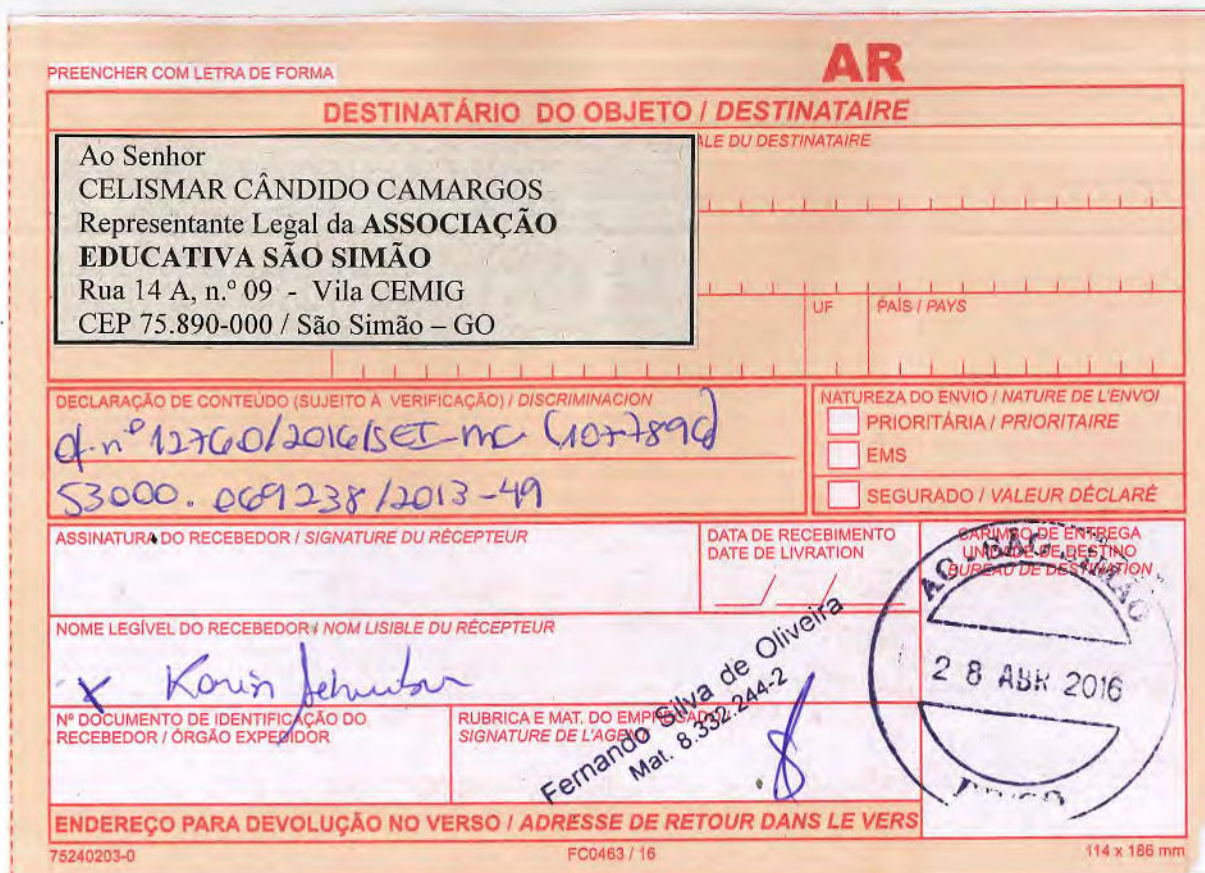 PREENCHER COM LETRA DE FORMA
AR
DESTINATÁRIO DO OBJETO / DESTINATAIRE
ALE DU DESTINATAIRE
Ao Senhor
CELISMAR CÂNDIDO CAMARGOS
Representante Legal da ASSOCIAÇÃO
EDUCATIVA SÃO SIMÃO
Rua 14 A, n.º 09 - Vila CEMIG
CEP 75.890-000 / São Simão – GO
UF
PAÍS / PAYS
DECLARAÇÃO DE CONTEÚDO (SUJEITO À VERIFICAÇÃO) / DISCRIMINACION
Of. nº 12760/2016/SEI-MC (1077896)
53000.069238/2013-49
NATUREZA DO ENVIO / NATURE DE L'ENVOI
PRIORITÁRIA / PRIORITAIRE
EMS
SEGURADO / VALEUR DÉCLARÉ
ASSINATURA DO RECEBEDOR / SIGNATURE DU RÉCEPTEUR
DATA DE RECEBIMENTO
DATE DE LIVRATION
/ /
CARIMBO DE ENTREGA
UNIDADE DE DESTINO
BUREAU DE DESTINATION
28 ABR 2016
NOME LEGÍVEL DO RECEBEDOR / NOM LISIBLE DU RÉCEPTEUR
x Karin
Nº DOCUMENTO DE IDENTIFICAÇÃO DO
RECEBEDOR / ÓRGÃO EXPEDIDOR
RUBRICA E MAT. DO EMPREGADO
SIGNATURE DE L'AGENT
Fernando Silva de Oliveira
Mat. 8.332.244-2
ENDEREÇO PARA DEVOLUÇÃO NO VERSO / ADRESSE DE RETOUR DANS LE VERS
75240203-0
FC0463 / 16
114 x 186 mm